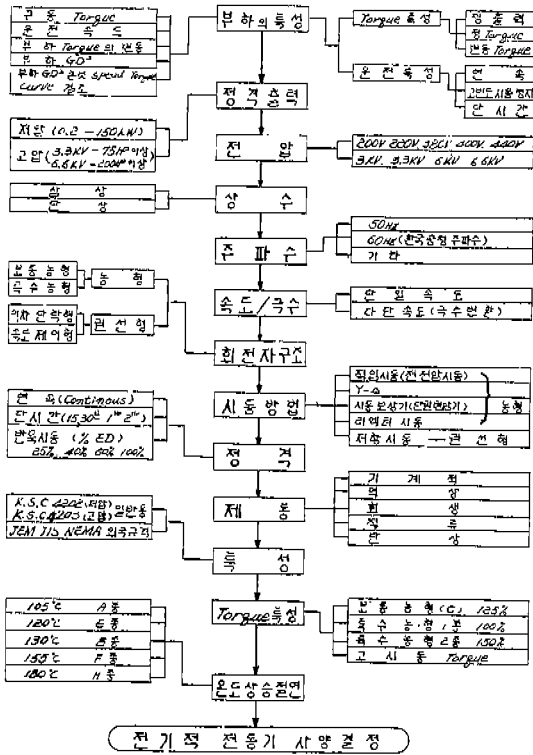 부하의특성
기동 Torque
운전속도
부하 Torque의 변동
부하 GD²
부하 GD² 란및 Speed Torque
Curve 검토
Torque특성
정출력
정 Torque
변동 Torque
운전특성
연속
고빈도시동정지
단시간
정격출력
저압 (0.2 - 150kW)
고압 (3.3KV - 75HP이상
6.6KV - 200HP이상)
전압
200V 220V 380V 400V 440V
3KV. 3.3KV 6KV 6.6KV
상수
삼상
단상
주파수
50Hz
60Hz (한국공칭주파수)
기타
속도/극수
단일속도
다단속도 (극수변환)
회전자구조
농형
보통농형
특수농형
권선형
이차단락형
속도제어형
시동방법
직입시동 (전전압시동)
Y-Δ
시동보상기 (단권변압기)
리액터시동
농형
저항시동 — 권선형
정격
연속 (Continous)
단시간 (15,30분 1Hr 2Hr)
반복시동 (% ED)
25% 40% 60% 100%
제동
기계적
역상
회생
직류
단상
특성
K.S.C 4202 (저압) 일반용
K.S.C 4203 (고압)
JEM JIS NEMA 외국규격
Torque특성
보통농형 (C) 125%
특수농형 1종 100%
특수농형 2종 150%
고시동 Torque
온도상승절연
105℃ A종
120℃ E종
130℃ B종
155℃ F종
180℃ H종
전기적 전동기 사양결정